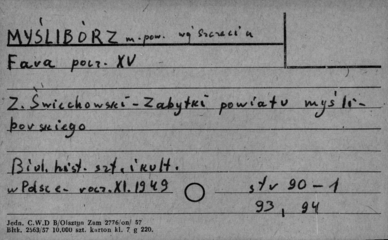 MYŚLIBÓRZ m. pow. woj Szczecin
Fara pocz. XV
Z. Świechowski - Zabytki powiatu myśli-
borskiego
Biul. hist. szt. i kult.
w Polsce - rocz. XI. 1949
str 90 - 1
93, 94
Jedn. C.W.D B/Olsztyn Zam 2776/on/ 57
Bltk. 2563/57 10,000 szt. karton kl. 7 g 220.